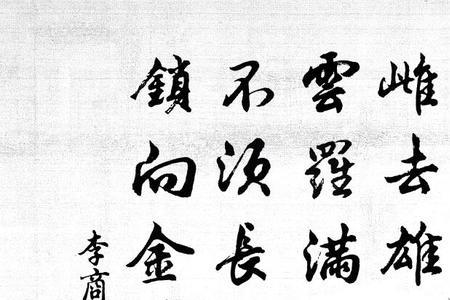 雌去雄
雲羅滿
不須長
鎖向金
李商